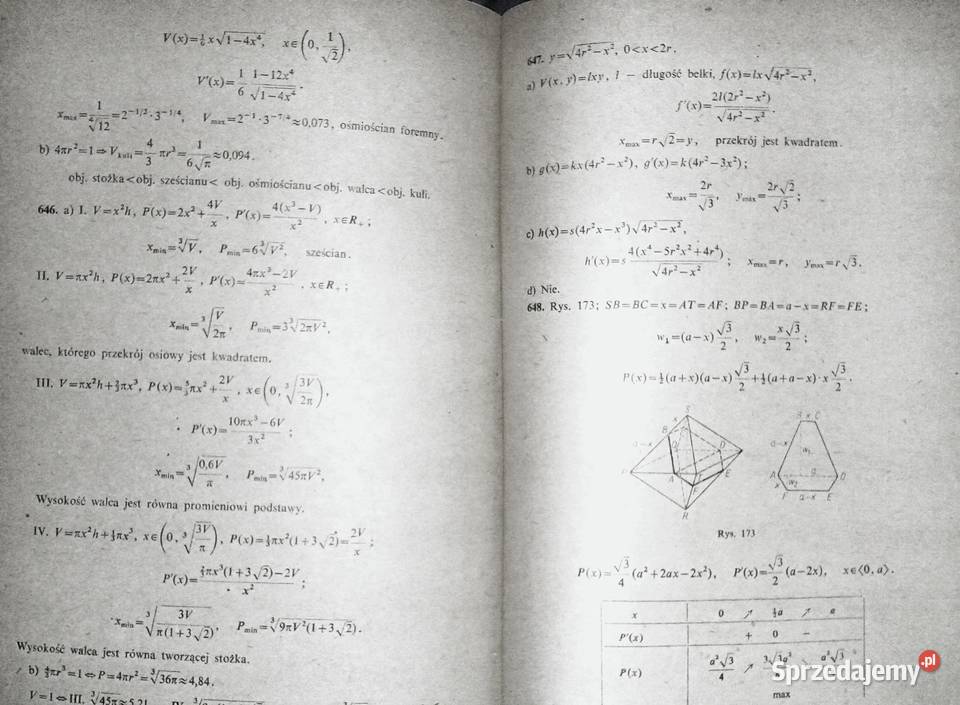 V(x)=⅙x√(1−4x⁴), x∈(0, 1/√2),
V′(x)=1/6 (1−12x⁴)/√(1−4x⁴).
x_max=1/⁴√12=2^(−1/2)·3^(−1/4), V_max=2^(−1)·3^(−7/4)≈0,073, ośmiościan foremny.
b) 4πr²=1⇒V_kuli=4/3 πr³=1/(6√π)≈0,094.
obj. stożka<obj. sześcianu< obj. ośmiościanu<obj. walca<obj. kuli.
646. a) I. V=x²h, P(x)=2x²+4V/x, P′(x)=4(x³−V)/x², x∈R₊;
x_min=³√V, P_min=6³√V², sześcian.
II. V=πx²h, P(x)=2πx²+2V/x, P′(x)=(4πx³−2V)/x², x∈R₊;
x_min=³√(V/2π), P_min=3³√(2πV²),
walec, którego przekrój osiowy jest kwadratem.
III. V=πx²h+⅔πx³, P(x)=5/3πx²+2V/x, x∈(0, ³√(3V/2π)),
P′(x)=(10πx³−6V)/3x²;
x_min=³√(0,6V/π), P_min=³√(45πV²),
Wysokość walca jest równa promieniowi podstawy.
IV. V=πx²h+⅓πx³, x∈(0, ³√(3V/π)), P(x)=⅓πx²(1+3√2)+2V/x;
P′(x)=(⅔πx³(1+3√2)−2V)/x²;
x_min=³√(3V/(π(1+3√2))), P_min=³√(9πV²(1+3√2)).
Wysokość walca jest równa tworzącej stożka.
b) 4/3πr³=1⇔P=4πr²=³√(36π)≈4,84.
V=1⇔III. ³√(45π)≈5,21
647. y=√(4r²−x²), 0<x<2r.
a) V(x, y)=lxy, l − długość belki, f(x)=lx√(4r²−x²),
f′(x)=2l(2r²−x²)/√(4r²−x²).
x_max=r√2=y, przekrój jest kwadratem.
b) g(x)=kx(4r²−x²), g′(x)=k(4r²−3x²);
x_max=2r/√3, y_max=2r√2/√3;
c) h(x)=s(4r²x−x³)√(4r²−x²),
h′(x)=s 4(x⁴−5r²x²+4r⁴)/√(4r²−x²); x_max=r, y_max=r√3.
d) Nie.
648. Rys. 173; SB=BC=x=AT=AF; BP=BA=a−x=RF=FE;
w₁=(a−x)√3/2, w₂=x√3/2;
P(x)=½(a+x)(a−x)√3/2+½(a+a−x)·x√3/2.
S
x
B
a−x
P
A
D
F
E
R
B x C
a−x
w₁
A
a
D
x
w₂
F
a−x
E
Rys. 173
P(x)=√3/4(a²+2ax−2x²), P′(x)=√3/2(a−2x), x∈⟨0, a⟩.
x 0 ↗ ½a ↗ a
P′(x) + 0 −
P(x) a²√3/4 ↗ a²√3
max
Sprzedajemy.pl